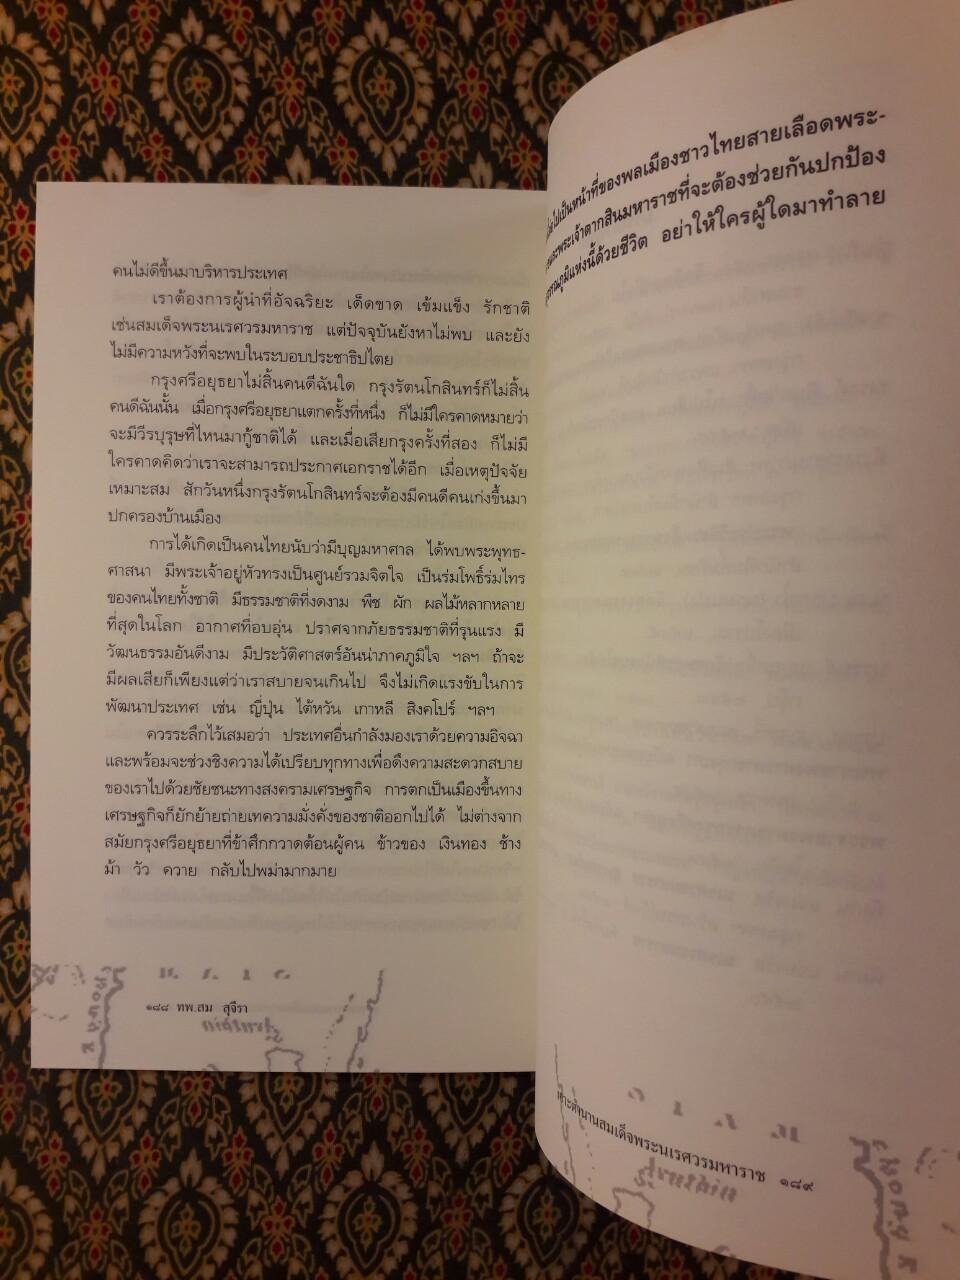 คนไม่ดีขึ้นมาบริหารประเทศ
เราต้องการผู้นำที่อัจฉริยะ เด็ดขาด เข้มแข็ง รักชาติ
เช่นสมเด็จพระนเรศวรมหาราช แต่ปัจจุบันยังหาไม่พบ และยัง
ไม่มีความหวังที่จะพบในระบอบประชาธิปไตย
กรุงศรีอยุธยาไม่สิ้นคนดีฉันใด กรุงรัตนโกสินทร์ก็ไม่สิ้น
คนดีฉันนั้น เมื่อกรุงศรีอยุธยาแตกครั้งที่หนึ่ง ก็ไม่มีใครคาดหมายว่า
จะมีวีรบุรุษที่ไหนมากู้ชาติได้ และเมื่อเสียกรุงครั้งที่สอง ก็ไม่มี
ใครคาดคิดว่าเราจะสามารถประกาศเอกราชได้อีก เมื่อเหตุปัจจัย
เหมาะสม สักวันหนึ่งกรุงรัตนโกสินทร์จะต้องมีคนดีคนเก่งขึ้นมา
ปกครองบ้านเมือง
การได้เกิดเป็นคนไทยนับว่ามีบุญมหาศาล ได้พบพระพุทธ-
ศาสนา มีพระเจ้าอยู่หัวทรงเป็นศูนย์รวมจิตใจ เป็นร่มโพธิ์ร่มไทร
ของคนไทยทั้งชาติ มีธรรมชาติที่งดงาม พืช ผัก ผลไม้หลากหลาย
ที่สุดในโลก อากาศที่อบอุ่น ปราศจากภัยธรรมชาติที่รุนแรง มี
วัฒนธรรมอันดีงาม มีประวัติศาสตร์อันน่าภาคภูมิใจ ฯลฯ ถ้าจะ
มีผลเสียก็เพียงแต่ว่าเราสบายจนเกินไป จึงไม่เกิดแรงขับในการ
พัฒนาประเทศ เช่น ญี่ปุ่น ไต้หวัน เกาหลี สิงคโปร์ ฯลฯ
ควรระลึกไว้เสมอว่า ประเทศอื่นกำลังมองเราด้วยความอิจฉา
และพร้อมจะช่วงชิงความได้เปรียบทุกทางเพื่อดึงความสะดวกสบาย
ของเราไปด้วยชัยชนะทางสงครามเศรษฐกิจ การตกเป็นเมืองขึ้นทาง
เศรษฐกิจก็ยักย้ายถ่ายเทความมั่งคั่งของชาติออกไปได้ ไม่ต่างจาก
สมัยกรุงศรีอยุธยาที่ข้าศึกกวาดต้อนผู้คน ข้าวของ เงินทอง ช้าง
ม้า วัว ควาย กลับไปพม่ามากมาย
๑๘๘ ทพ.สม สุจีรา
ไปเป็นหน้าที่ของพลเมืองชาวไทยสายเลือดพระ-
และพระเจ้าตากสินมหาราชที่จะต้องช่วยกันปกป้อง
แห่งนี้ด้วยชีวิต อย่าให้ใครผู้ใดมาทำลาย
ตำนานสมเด็จพระนเรศวรมหาราช ๑๘๙